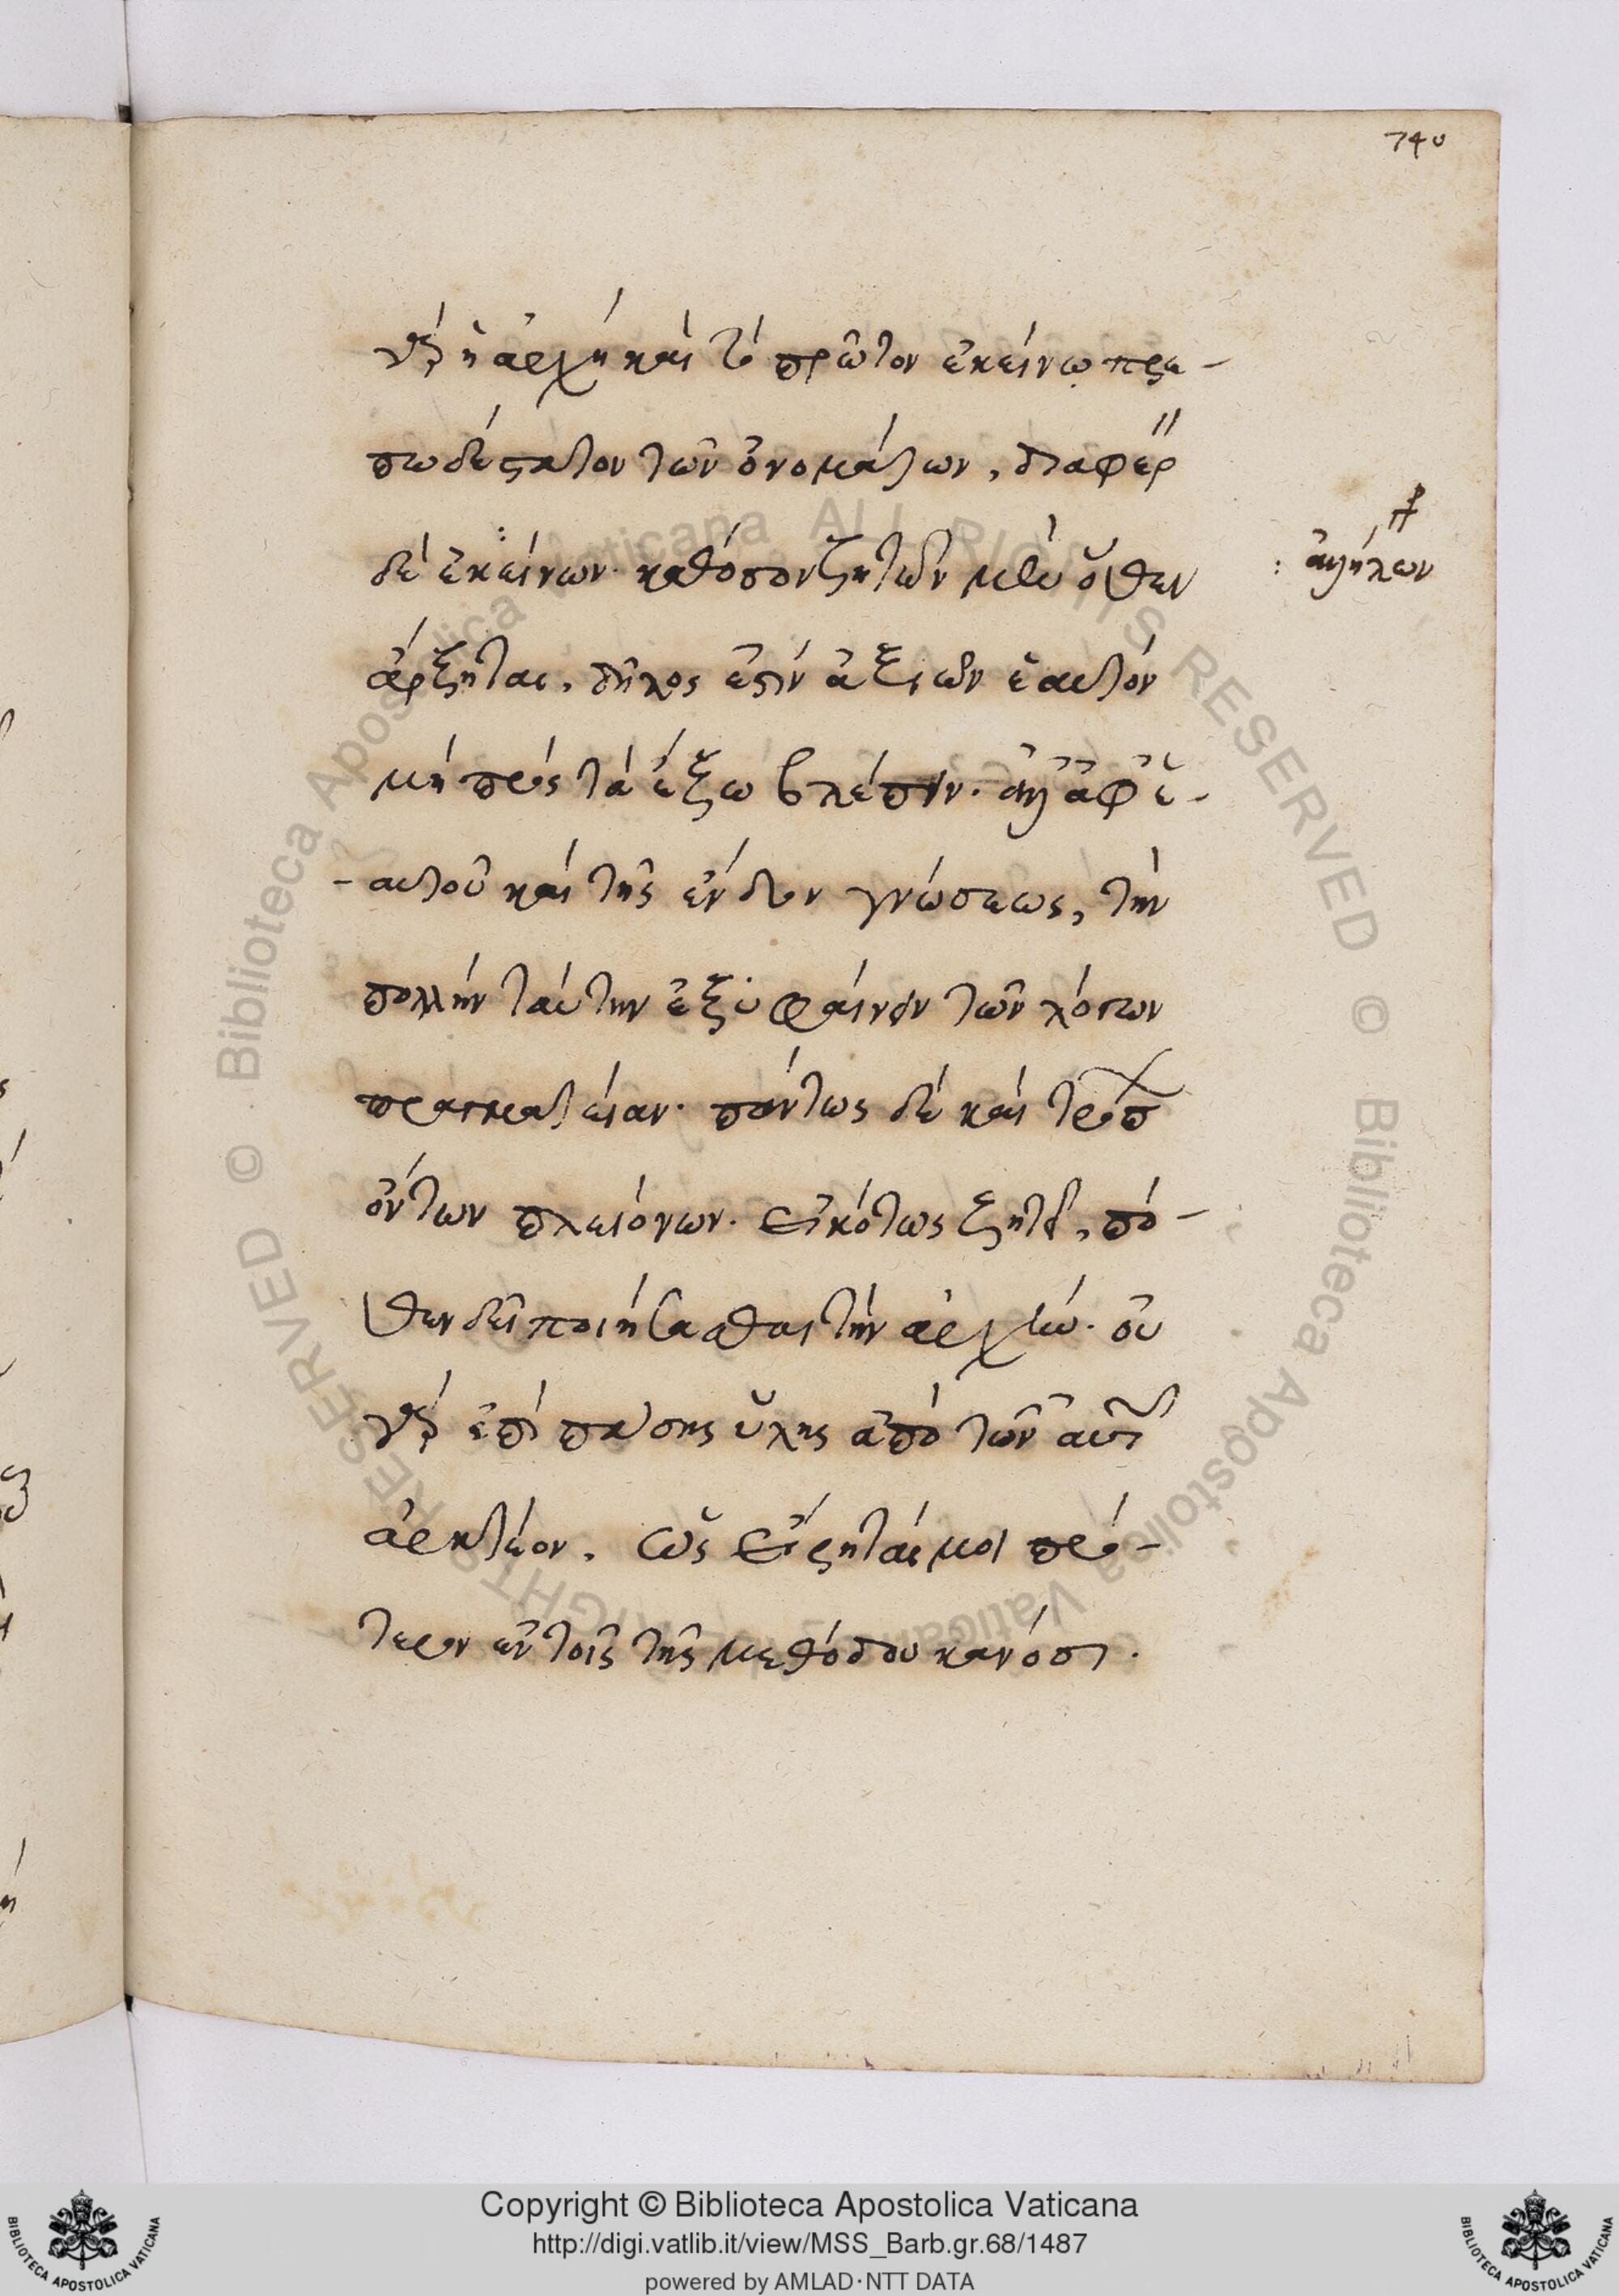 740
γὰρ ἡ ἀρχὴ καὶ τὸ πρῶτον ἐκείνῳ πρε-
πωδέστατον τῶν ὀνομάτων, διαφέρ
δὲ ἐκείνων· καθόσον ζητῶν μὲν ὅθεν
: ἀλλήλων
ἄρξηται, δῆλος ἐστὶν ἀξιῶν ἑαυτὸν
μὴ πρὸς τὰ ἔξω βλέπειν· ἀλλ' ἀφ' ἑ-
-αυτοῦ καὶ τῆς ἔνδον γνώσεως, τὴν
πολλὴν ταύτην ἐξυφαίνειν τῶν λόγων
πραγματείαν· πάντως δὲ καὶ τρόπ
ὄντων πλειόνων· εἰκότως ζητεῖ, πό-
θεν δεῖ ποιήσασθαι τὴν ἀρχήν· οὐ
γὰρ ἐπὶ πάσης ὕλης ἀπὸ τῶν αὐτ
ἀρκτέον, ὡς εἴρηταί μοι πρό-
τερον ἐν τοῖς τῆς μεθόδου κανόσι.
Copyright © Biblioteca Apostolica Vaticana
http://digi.vatlib.it/view/MSS_Barb.gr.68/1487
powered by AMLAD·NTT DATA
BIBLIOTECA APOSTOLICA VATICANA
BIBLIOTECA APOSTOLICA VATICANA
© Biblioteca Apostolica Vaticana ALL RIGHTS RESERVED © Biblioteca Apostolica Vaticana ALL RIGHTS RESERVED